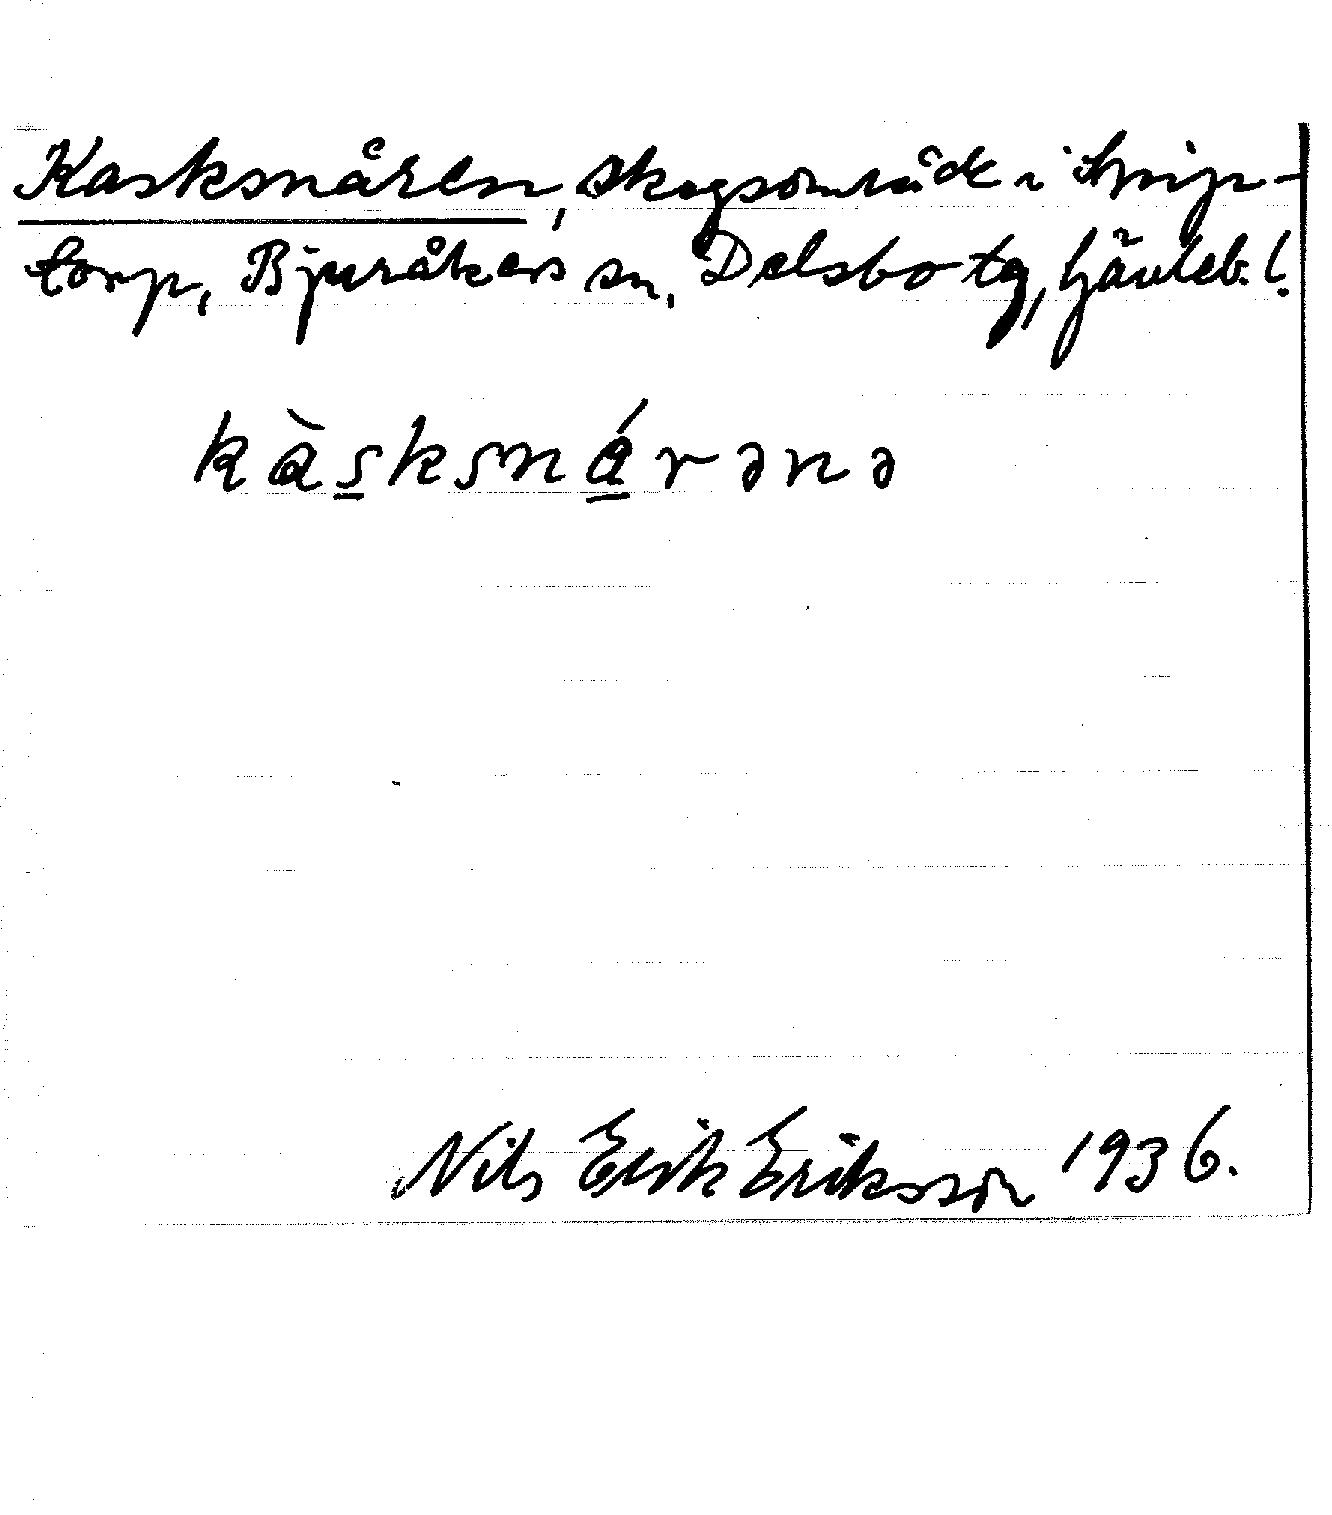 Kasksnåren, skogsområde i Snip-
torp, Bjuråkers sn, Delsbo tg, Gävleb. l.
kàs̲ksná̲rənə
Nils Erik Eriksson 1936.